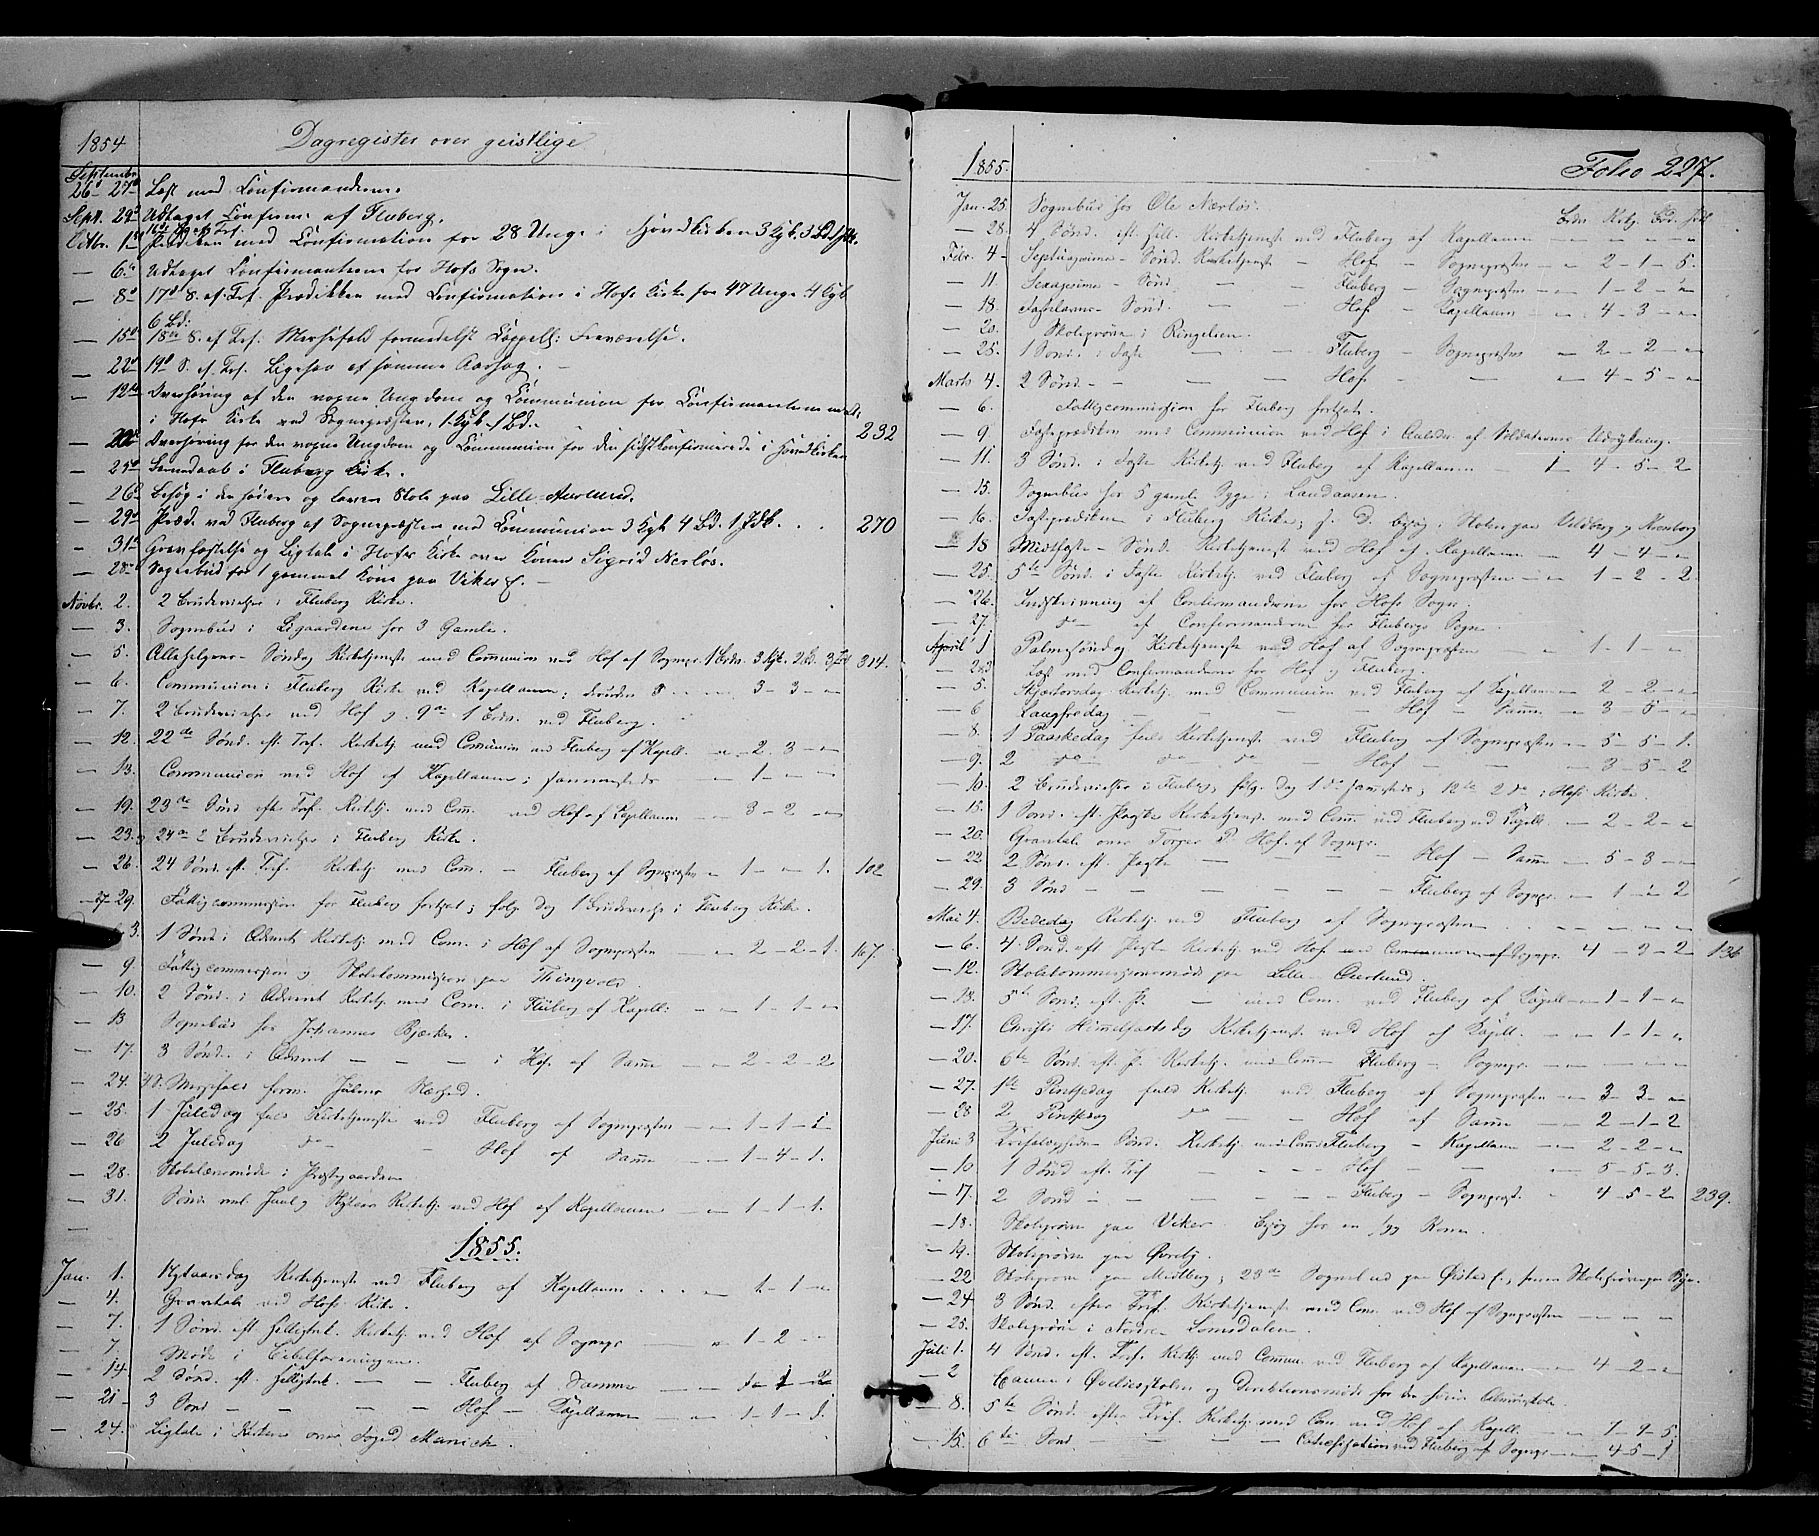 1854 Dagregister over geistlige
September
26d 27d Læst med Confirmanderne.
Sept. 29d Udtaget Confirm: af Fluberg.
Octbr. 1d Prædiken med Confirmation for 28 Unge i Hovedkirken 3 Kgk. 3 Bd.
— 6te Udtaget Confirmanterne for Hofs Sogn.
— 8d 17d S. ef. Tref. Prædikken med Confirmation i Hofs Kirke for 47 Unge 4 Kgk
6 Bd:
— 15d 18de S. ef. Tref. Messefald formedelst Cappell: Fraværelse.
— 22d 19d S. ef. Tref. Ligesaa af samme Aarsag.
— 12te Overhøring af den vogne Ungdom og Communion for Confirmanterne
i Hofs Kirke ved Sognepræsten, 1 Kgk. 1 Bd. 232
— 22d Overhøring for den vogne Ungdom og Communion for de sidstkonfirmerede i Hovedkirken
— 25d i Fluberg Kirke.
— 26d Besøg i den høiere og lavere Skole paa Lille-Aurlund.
— 29d Præd. ved Fluberg af Sognepræsten med Communion 3 Kgk 4 Bd. 1 Jdb. . . 270
— 31d Gravfæstelse og Ligtale i Hofs Kirke over Konen Sigrid Nerløs.
— 28d Sognebud for 1 gammel Kone paa Viker E.
Novbr. 2. 2 Brudevielser i Fluberg Kirke.
— 3. Sognebud i Ligaardene for 3 Gamle.
— 5. Allehelgens-Søndag Kirketjeneste med Communion ved Hof af Sognepr. 1 Brdv. 3 Kgk. 2 Bd. 314.
— 6. Communion i Fluberg Kirke ved Kapellanen; 3 - 3 - "
— 7. 2 Brudevielser ved Hof og 9de 1 Brdv. ved Fluberg.
— 12. 22de Sønd. eft. Tref. Kirketj. med Communion ved Fluberg af Kapell. - " - 2 - 3 - "
— 13. Communion ved Hof af Kapellanen i sammesteds - " - 1 - " - "
— 19. 23de Sønd efter Tref. Kirketj. med Comm. ved Hof af Capellanen - 3 - 2 - "
— 23. 24de 2 Brudevielser i Fluberg Kirke.
— 26. 24 Sønd. eft. Tref. Kirketj. med Com. - Fluberg af Sognepræsten " - 1 - " - 1. 102
— 27-29. Fattigcommission for Fluberg fortsat; følg. Dag 1 Brudevielse i Fluberg Kirke.
3. 1 Sønd i Advent Kirketj. med Com. i Hof af Sognepræsten — 2 - 2 - 1. 167.
— 9. Fattigcommission og Skolekommission paa Thingvold
— 10. 2 Sønd. i Advent Kirketj. med Com. i Fluberg af Kapell: - " - 1 - 1 - "
— 13 Sognebud for Johannes Bjerke.
— 17. 3 Sønd. i Advent — — — i Hof af Samme — 2 - 2 - 2
— 24. 4 S. Messefald form. Julens Nærhed.
— 25. 1 Juledag fuld Kirketjeneste ved Fluberg af Sognepræsten - " - 1 - 1 - 1
— 26 2 Juledag do - Hof af Samme - " - 1 - 4 - 1.
— 28. i Præstegaarden
— 31. Sønd. ml. Juul og Nytaar Kirketj. ved Hof af Kapellanen - " - 1 - 1 - 1.
1855.
Jan. 1. Nytaarsdag Kirketjeneste ved Fluberg af Kapellanen . . . " - 1 - 1 - "
— 4. Gravtale ved Hofs Kirke.
— 7. 1 Sønd. eft. Helligtrek. Kirketj. ved Hof af Sognepr " - 1 - 2 - "
— 7. Møde i Bibelforeningen.
— 14. 2 Sønd. eft. Helligtrek. — — Fluberg af Samme — " - 1 - 2
— 21 3 Sønd — — — Hof — Capellanen — " - 1 - 1 - 1.
— 24. Ligtale i Kirken over Foged Manick.
1855. Folio 227.
Brdv. Kirkg. Bd. Jdb.
Jan. 25. Sognebud hos Ole Nerløs.
— 28. 4 Sønd. eft. Hell. Kirketjeneste ved Fluberg af Kapellanen — " — " — " — "
Febr. 4 Septuagesima-Sønd. Kirketjeneste — Hof — Sognepræsten — " — 2 - 1 - 5.
— 11. Sexagesima-Sønd. — — Fluberg — Sognepræsten — " — 1 - 2 - "
— 18. Fastelavns-Sønd. — — Hof — Capellanen — " . 4 - 3 - "
— 20. Skoleprøve i Ringelien.
— 25. 1 Sønd. i Faste — — Fluberg — Sognepræsten — 2 - 2 - "
Marts 4. 2 Sønd. — — — Hof — — " - 4 - 5 - "
— 6. Fattigcommission for Fluberg fortsat.
— 9 Fasteprædiken med Communion ved Hof i Anledn. af Soldaternes Udrykning.
— 11. 3 Sønd. i Faste Kirketj. ved Fluberg af Kapellanen — 1 - 4 - 5 - 2
— 15. Sognebud for 5 gamle Syge i Landaasen.
— 16. Fasteprædiken i Fluberg Kirke; s. D. besøg i Skolen paa Veltberg og Kronborg
— 18 Midfaste-Sønd. Kirketjeneste ved Hof af Kapellanen — 4 - 4 - "
— 25. 5te Sønd. i Faste Kirketj. ved Fluberg af Sognepræsten - " - 1 - 2 - 2.
— 26. Indskrivning af Confirmanderne for Hofs Sogn.
— 27. do af Confirmanderne for Flubergs Sogn
April 1 Palmesøndag Kirketjeneste ved Hof af Sognepræsten — 1 - 1 - "
— 2&3 Læst med Confirmanderne for Hof og Fluberg
— 5. Skjærtorsdag Kirketj. med Communion ved Fluberg af Kapellanen — 2 - 2 - "
— 6 Langfredag — — — Hof — Samme — 3 - 5 - "
— 8. 1 Paaskedag fuld Kirketjeneste ved Fluberg af Sognepræsten — 5 - 5 - 1.
— 9. 2 do do do Hof — — 3 - 5 - 2
— 10. 2 Brudevielser i Fluberg, følg. Dag 1 do sammesteds; 12te 2 do i Hofs Kirke.
— 15. 1 Sønd. eft. Paaske Kirketjeneste med Com. ved Fluberg ved Kapell. — 2 - 2 - "
— 20. Gravtale over Torger D. Hof. af Sognepr.
— 22 2 Sønd. eft. Paaske — — — Hof — Samme — 5 - 3 - "
— 29. 3 Sønd — — — Fluberg af Sognepr. — 1 - 1 - 2
Mai 4. Bededag Kirketj. ved Fluberg af Sognepræsten . . — — — "
— 6. 4. Sønd. eft Paaske Kirketj. ved Hof med Communion af Sognepr. 4 - 3 - 2 136
— 12. Skolekommissionsmøde paa Lille-Aurlund.
— 13. 5te Sønd. eft. P. — med Com. ved Fluberg af Capell — 1 - 1 - "
— 17. Christi Himmelfartsdag Kirketjeneste ved Hof af Capell. — " — 1 - 1 - "
— 20. 6te Sønd. eft. P. Kirketj. med Com Fluberg — Sognepr. — " — " — "
— 27. 1ste Pintsedag fuld Kirketj. ved Fluberg af Sognepræsten — " 3 - 3 - "
— 28 2. Pintsedag do — Hof af Samme — 2 - 1 - 2
Juni 3 Trefoldigheds-Sønd. Kirketj. med Com Fluberg — Kapellanen — 2 - 2 - "
— 10. 1 Sønd eft. Tref — — — Hof — — 5 - 5 - 3.
— 17. 2 Sønd — — — Fluberg — Sognepræst. " 4 - 5 - 2 239.
— 18. Skoleprøve paa Viker. Besøg hos en syg Kone.
— 19. Skoleprøve paa Øvrebj.
— 22 Skoleprøve paa Midtberg; 23de Sognebud paa Østad E., samme Skoleprøve paa
— 24 3 Sønd. efter Tref. Kirketjeneste med Com. ved Hof af Sognepræsten — — — "
— 25. Skoleprøve i Nordre Lomsdalen.
Juli 1. 4 Sønd. eft. Tref. Kirktj. med Comm. ved Fluberg af Kapellanen — 4 - 2 - "
— 2 Examen i Øvelsesskolen og Direktionsmøde for den høiere Almueskole.
— 8. 5te Sønd. efter Tref. Kirketj. med Com. ved Hof af Kapell. — 7 - 9 - 5.
— 15. 6te Sønd. — — — Catechisation ved Fluberg af Sognepr. — 4 - 5 - 1